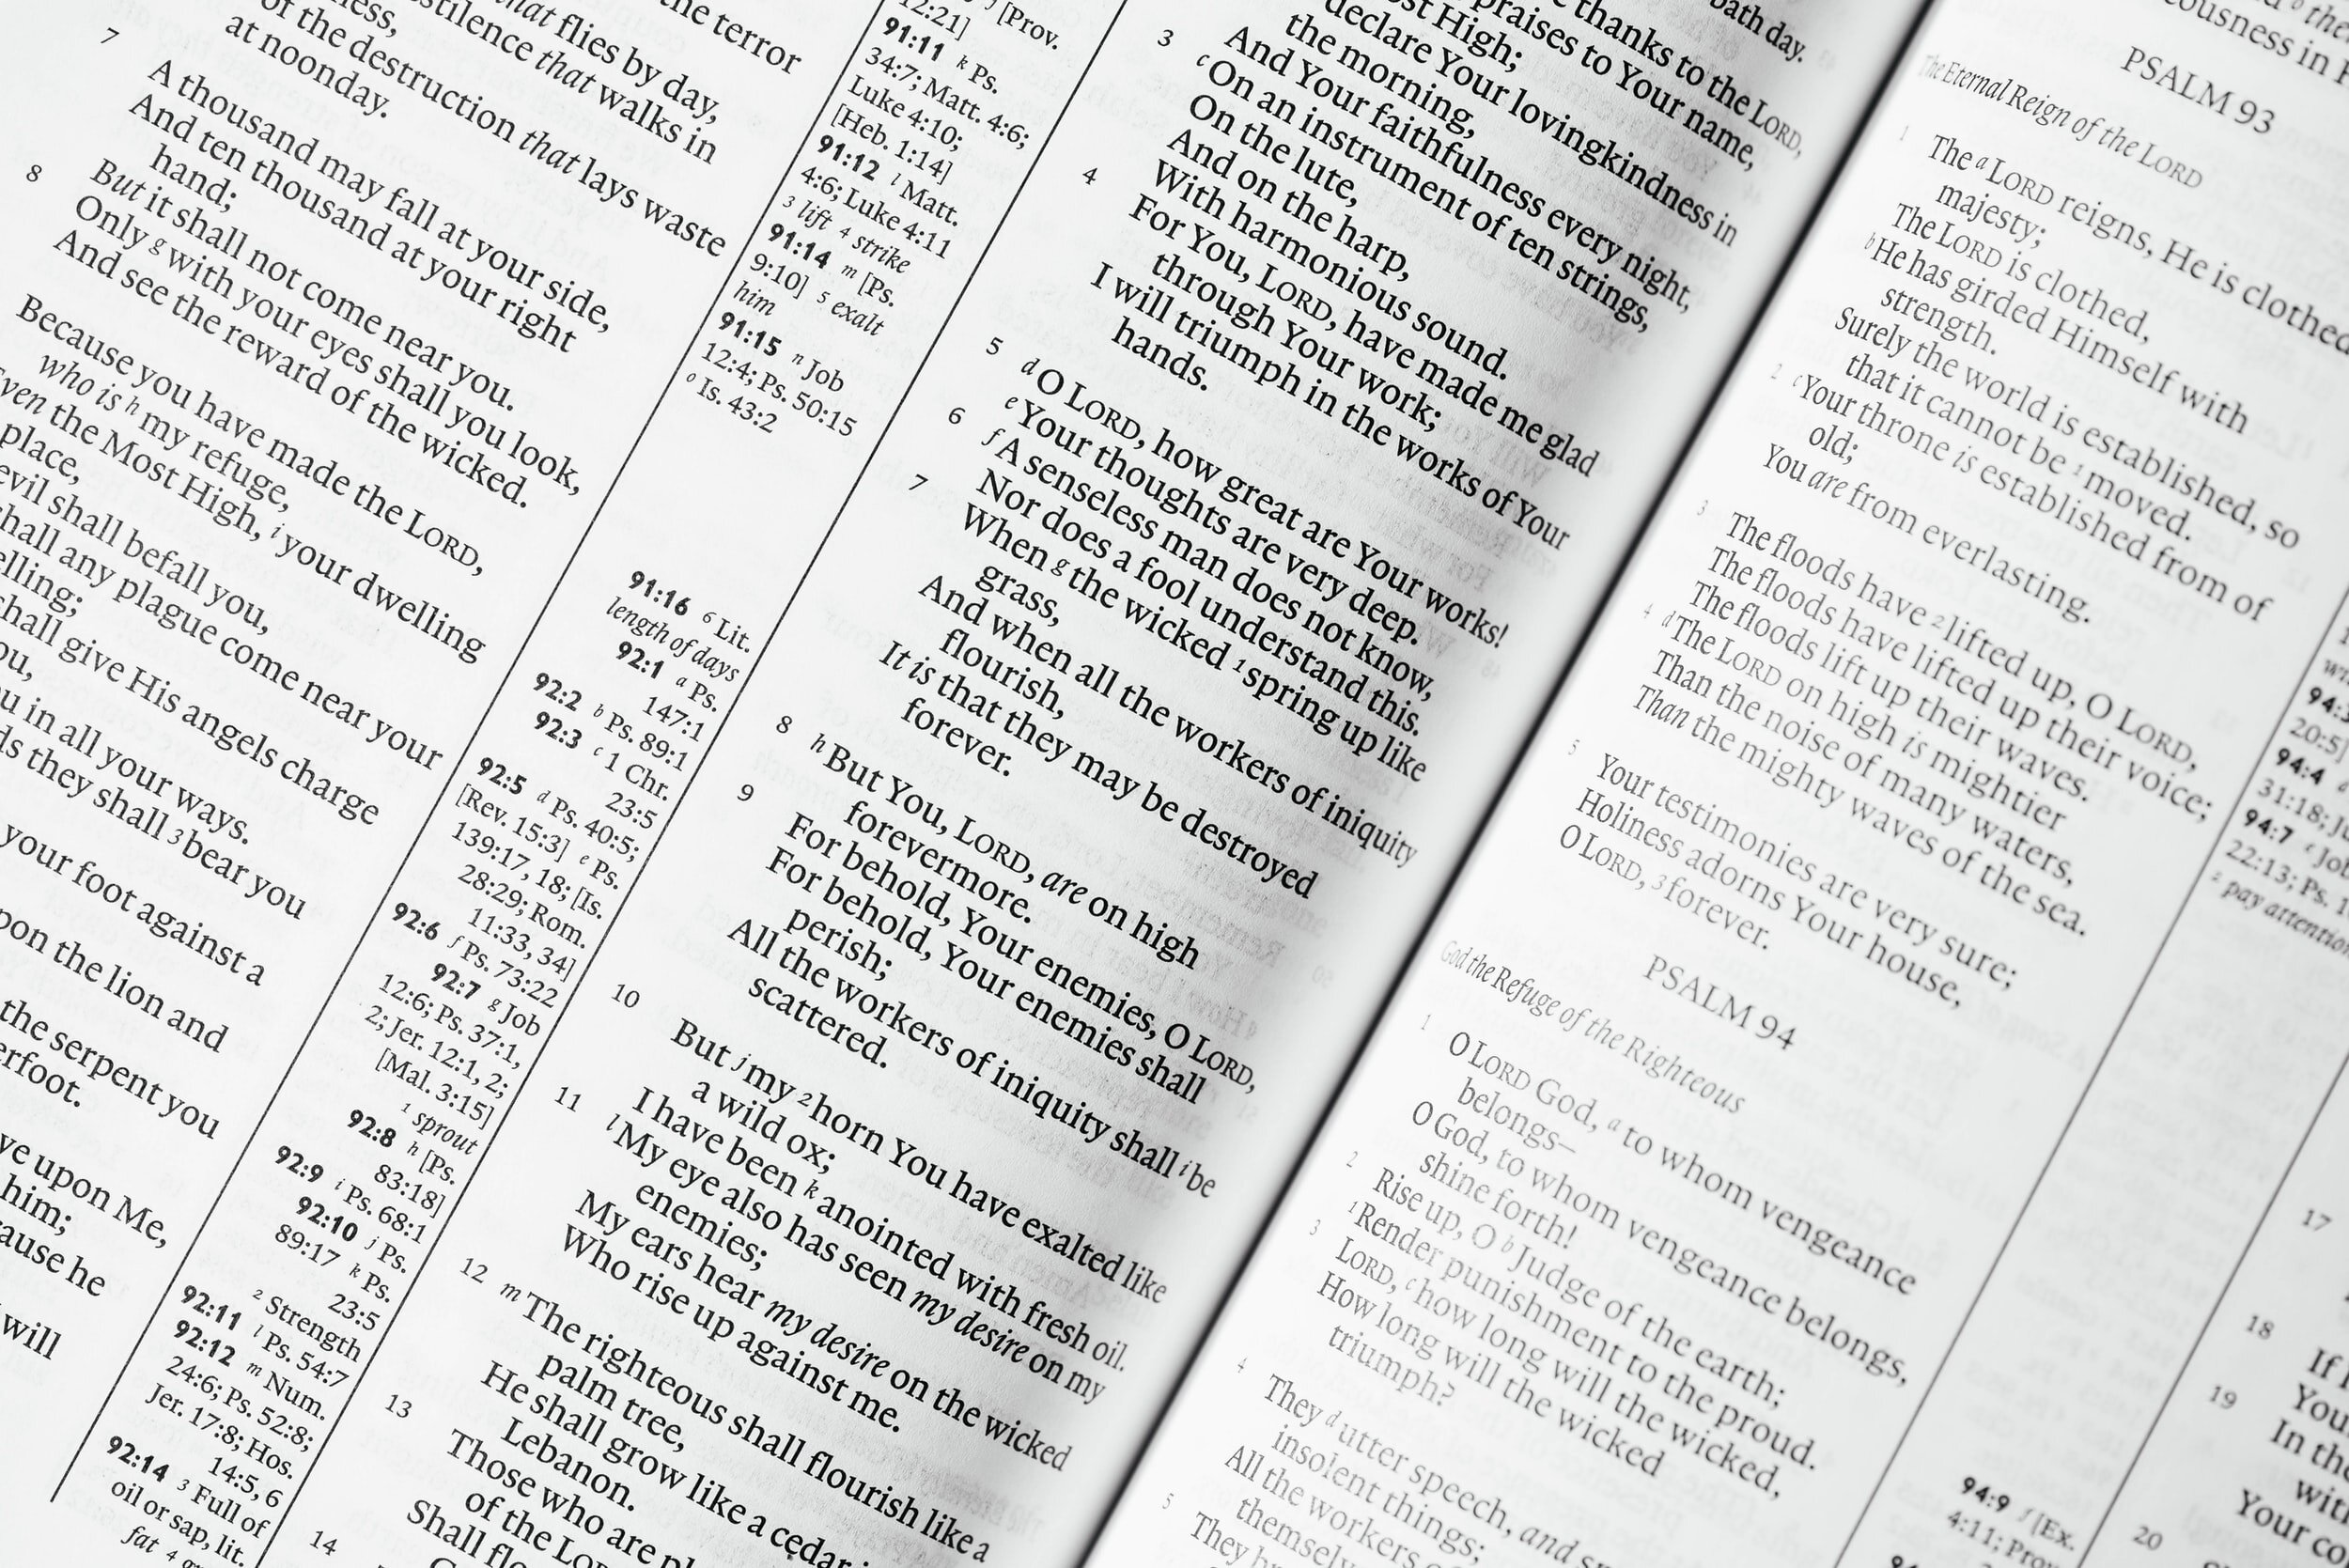 the terror
that flies by day,
stilence that walks in
of the destruction that lays waste
at noonday.
7
A thousand may fall at your side,
And ten thousand at your right
hand;
But it shall not come near you.
8
Only g with your eyes shall you look,
And see the reward of the wicked.
Because you have made the LORD,
who is h my refuge,
Even the Most High, i your dwelling
place,
evil shall befall you,
shall any plague come near your
elling;
shall give His angels charge
ou,
u in all your ways.
ds they shall 3 bear you
your foot against a
pon the lion and
the serpent you
erfoot.
ve upon Me,
him;
ause he
will
12:21] [Prov.
91:11 k Ps.
34:7; Matt. 4:6;
Luke 4:10;
[Heb. 1:14]
91:12 l Matt.
4:6; Luke 4:11
3 lift 4 strike
91:14 m [Ps.
9:10] 5 exalt
him
91:15 n Job
12:4; Ps. 50:15
o Is. 43:2
91:16 6 Lit.
length of days
92:1 a Ps.
147:1
92:2 b Ps. 89:1
92:3 c 1 Chr.
23:5
92:5 d Ps. 40:5;
[Rev. 15:3] e Ps.
139:17, 18; [Is.
28:29; Rom.
11:33, 34]
92:6 f Ps. 73:22
92:7 g Job
12:6; Ps. 37:1,
2; Jer. 12:1, 2;
[Mal. 3:15]
1 sprout
92:8 h [Ps.
83:18]
92:9 i Ps. 68:1
92:10 j Ps.
89:17 k Ps.
23:5
2 Strength
92:11 l Ps. 54:7
92:12 m Num.
24:6; Ps. 52:8;
Jer. 17:8; Hos.
14:5, 6
92:14 3 Full of
oil or sap, lit.
fat 4
bath day.
thanks to the LORD,
praises to Your name,
ost High;
declare Your lovingkindness in
the morning,
And Your faithfulness every night,
3
c On an instrument of ten strings,
On the lute,
And on the harp,
With harmonious sound.
4
For You, LORD, have made me glad
through Your work;
I will triumph in the works of Your
hands.
5
d O LORD, how great are Your works!
e Your thoughts are very deep.
6
f A senseless man does not know,
Nor does a fool understand this.
7
When g the wicked 1 spring up like
grass,
And when all the workers of iniquity
flourish,
It is that they may be destroyed
forever.
8
h But You, LORD, are on high
forevermore.
9
For behold, Your enemies, O LORD,
For behold, Your enemies shall
perish;
All the workers of iniquity shall i be
scattered.
10
But j my 2 horn You have exalted like
a wild ox;
I have been k anointed with fresh oil.
11
l My eye also has seen my desire on my
enemies;
My ears hear my desire on the wicked
Who rise up against me.
12
m The righteous shall flourish like a
palm tree,
He shall grow like a cedar
Lebanon.
13
Those who are
of the LORD
Shall
14
ousness in
PSALM 93
The Eternal Reign of the LORD
1
The a LORD reigns, He is clothed
majesty;
The LORD is clothed,
b He has girded Himself with
strength.
Surely the world is established, so
that it cannot be 1 moved.
2
c Your throne is established from of
old;
You are from everlasting.
3
The floods have 2 lifted up, O LORD,
The floods have lifted up their voice;
The floods lift up their waves.
4
d The LORD on high is mightier
Than the noise of many waters,
Than the mighty waves of the sea.
5
Your testimonies are very sure;
Holiness adorns Your house,
O LORD, 3 forever.
PSALM 94
God the Refuge of the Righteous
1
O LORD God, a to whom vengeance
belongs—
O God, to whom vengeance belongs,
shine forth!
2
Rise up, O b Judge of the earth;
1 Render punishment to the proud.
3
LORD, c how long will the wicked,
How long will the wicked
triumph?
4
They d utter speech, and
insolent things;
All the workers
themsel
5
They
20:5]
94:4
31:18; J
94:7 e Job
22:13; Ps. 1
2 pay attention
94:9 f [Ex.
4:11; Prov
17
18
If
19
You
In the
with
Your co
20